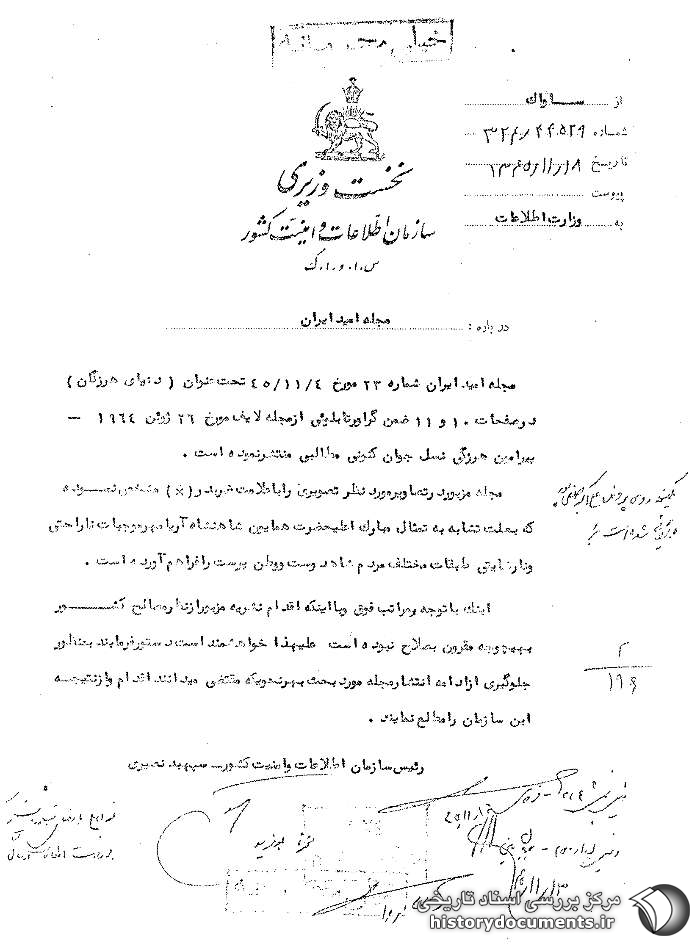 خیلی محرمانه
از ساواک
شماره ۳۲۶/۴۴۵۲۹
تاریخ ۱۳۴۵/۱۱/۱۸
پیوست
به وزارت اطلاعات
نخست وزیری
سازمان اطلاعات و امنیت کشور
س.ا.و.ا.ک
در باره : مجله امید ایران
مجله امید ایران شماره ۲۳ مورخ ۴۵/۱۱/۴ تحت عنوان ( دنیای هرزگان )
در صفحات ۱۰ و ۱۱ ضمن گراور تابلوئی از مجله لایف مورخ ۲۶ ژوئن ۱۹۶۴ –
پیرامین هرزگی نسل جوان کنونی مطالبی منتشر نموده است .
مجله مزبور در تصاویر مورد نظر تصویری را با علامت ضربدر (×) مشخص نموده
که بعلت تشابه به تمثال مبارک اعلیحضرت همایون شاهنشاه آریامهر موجبات ناراحتی
و نارضایتی طبقات مختلف مردم شاهدوست و وطن پرست را فراهم آورده است .
اینک با توجه بمراتب فوق و با اینکه اقدام نشریه مزبور از نظر مصالح کشور
بهیچوجه مقرون بصلاح نبوده است علیهذا خواهشمند است دستور فرمایند بمنظور
جلوگیری از ادامه انتشار مجله مورد بحث بهر نحو یکه مقتضی میدانند اقدام و از نتیجه
این سازمان را مطلع نمایند .
رئیس سازمان اطلاعات و امنیت کشور – سپهبد نصیری
۲
۱۹۶
مرکز بررسی اسناد تاریخی
historydocuments.ir